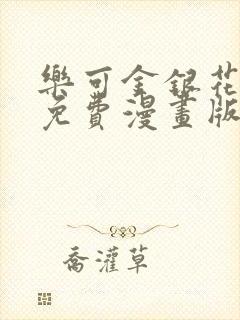 樂可金銀花
免費漫畫版
喬灌草